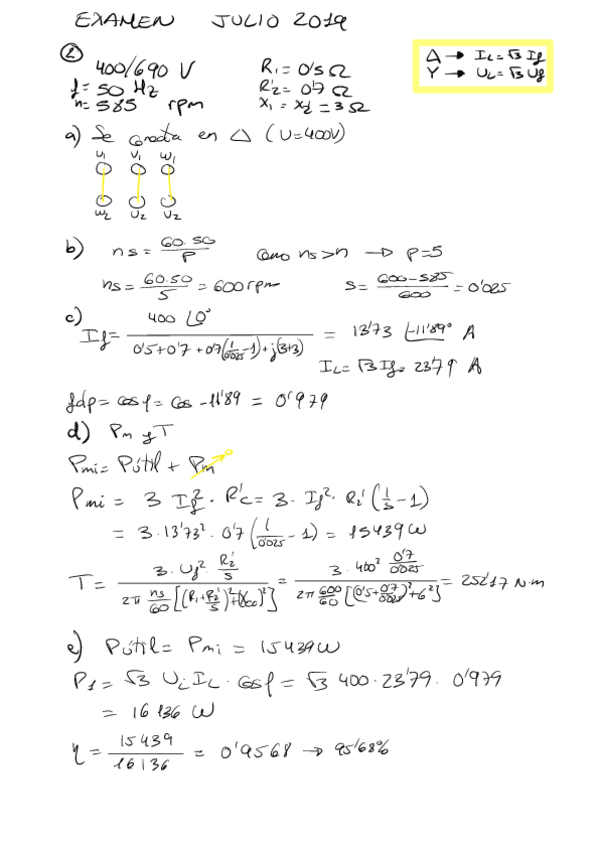 EXAMEN JULIO 2019
2)
Δ → IL = √3 If
Y → UL = √3 Uf
400/690 V R1 = 0'5 Ω
f = 50 Hz R2' = 0'7 Ω
n = 585 rpm X1 = X2' = 3 Ω
a) Se conecta en Δ (U = 400V)
U1 V1 W1
W2 U2 V2
b) ns = 60·50/P Como ns > n → p = 5
ns = 60·50/5 = 600 rpm S = 600-585/600 = 0'025
c) If = 400 ∠0° / 0'5+0'7+0'7(1/0'025 -1)+j(3+3) = 13'73 ∠-11'89° A
IL = √3 If = 23'79 A
fdp = cos φ = cos -11'89 = 0'979
d) Pm y T
Pmi = Pútil + Pm → 0
Pmi = 3 If² · R'c = 3 · If² · R2' (1/s -1)
= 3 · 13'73² · 0'7 (1/0'025 - 1) = 15439 W
T = 3 · Uf² · R2'/s / 2π ns/60 [(R1 + R2'/s)² + (Xcc)²] = 3 · 400² 0'7/0'025 / 2π 600/60 [(0'5 + 0'7/0'025)² + 6²] = 252'17 N·m
e) Pútil = Pmi = 15439 W
P1 = √3 UL IL · cos φ = √3 400 · 23'79 · 0'979
= 16136 W
η = 15439/16136 = 0'9568 → 95'68%